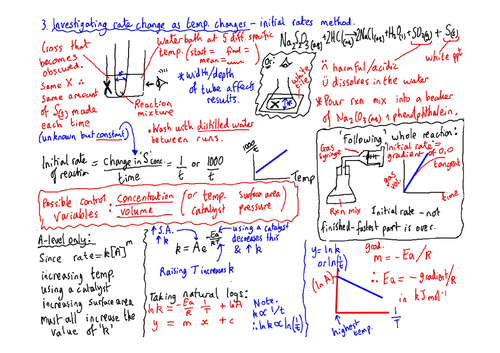 3. Investigating rate change as temp. changes - initial rates method.
Cross that
becomes
obscured.
Same X ∴
same amount
of S(s) made
each time
(unknown but constant)
water bath at 5 diff. specific
temp. (start = final =
mean =
* width/depth
of tube affects
results.
Reaction
mixture
• Wash with distilled water
between runs.
Or:
white tile
X
Na2S2O3(aq) + 2HCl(aq) → 2NaCl(aq) + H2O(l) + SO2(g) + S(s)
white ppt
harmful/acidic
dissolves in the water
* Pour rxn mix into a beaker
of Na2CO3(aq) + phenolphthalein.
Initial rate of reaction = change in S conc. / time = 1/t or 1000/t
1000/t
Temp
Possible control variables: Concentration volume (or temp. catalyst Surface area pressure)
'Following' whole reaction:
Gas syringe
Initial rate =
gradient at 0,0
tangent
gas vol.
time
Rxn mix
Initial rate - not
finished - fastest part is over.
A-level only:
Since rate = k[A]^m
increasing temp.
using a catalyst
increasing surface area
must all increase the
value of 'k'
↑ S.A. ↑ k
k = Ae^-Ea/RT
using a catalyst
decreases this
& ↑ k
Raising T increases k
Taking natural logs:
ln k = -Ea/R 1/T + ln A
y = m x + c
Note.
k ∝ 1/t
∴ ln k ∝ ln(1/t)
y = ln k
or ln(1/t)
(ln A)
grad.
m = -Ea/R
∴ Ea = -gradient/R
in kJmol⁻¹
highest
temp.
1/T